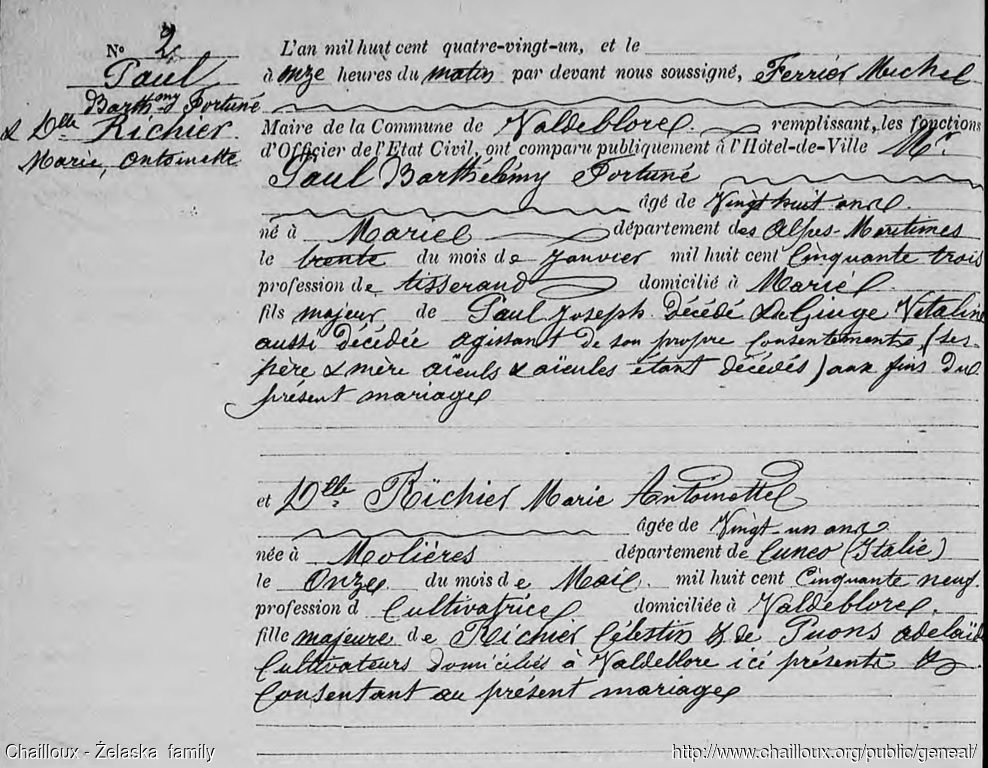 N° 2
Paul
Barthmy Fortuné
& Dlle Richier
Marie, Antoinette
L'an mil huit cent quatre-vingt-un, et le
à onze heures du matin par devant nous soussigné, Ferrier Michel
Maire de la Commune de Valdeblore remplissant, les fonctions
d'Officier de l'Etat Civil, ont comparu publiquement à l'Hôtel-de-Ville Mr.
Paul Barthélémy Fortuné
âgé de Vingt huit ans
né à Marie département des Alpes-Maritimes
le trente du mois de Janvier mil huit cent Cinquante trois
profession de tisserand domicilié à Marie.
fils majeur de Paul Joseph Décédé & de Giuge Vitaline
aussi Décédée agissant de son propre Consentement (ses
père & mère aïeuls & aïeules étant décédés) aux fins du
présent mariage
et Dlle Richier Marie Antoinette
âgée de Vingt un ans
née à Molières département de Cuneo (Italie)
le Onze du mois de Mai mil huit cent Cinquante neuf
profession d Cultivatrice domiciliée à Valdeblore.
fille majeure de Richier Célestin & de Puons adelaïde
Cultivateurs domiciliés à Valdeblore ici présents &
Consentant au présent mariage
Chailloux - Żelaska family
http://www.chailloux.org/public/geneal/